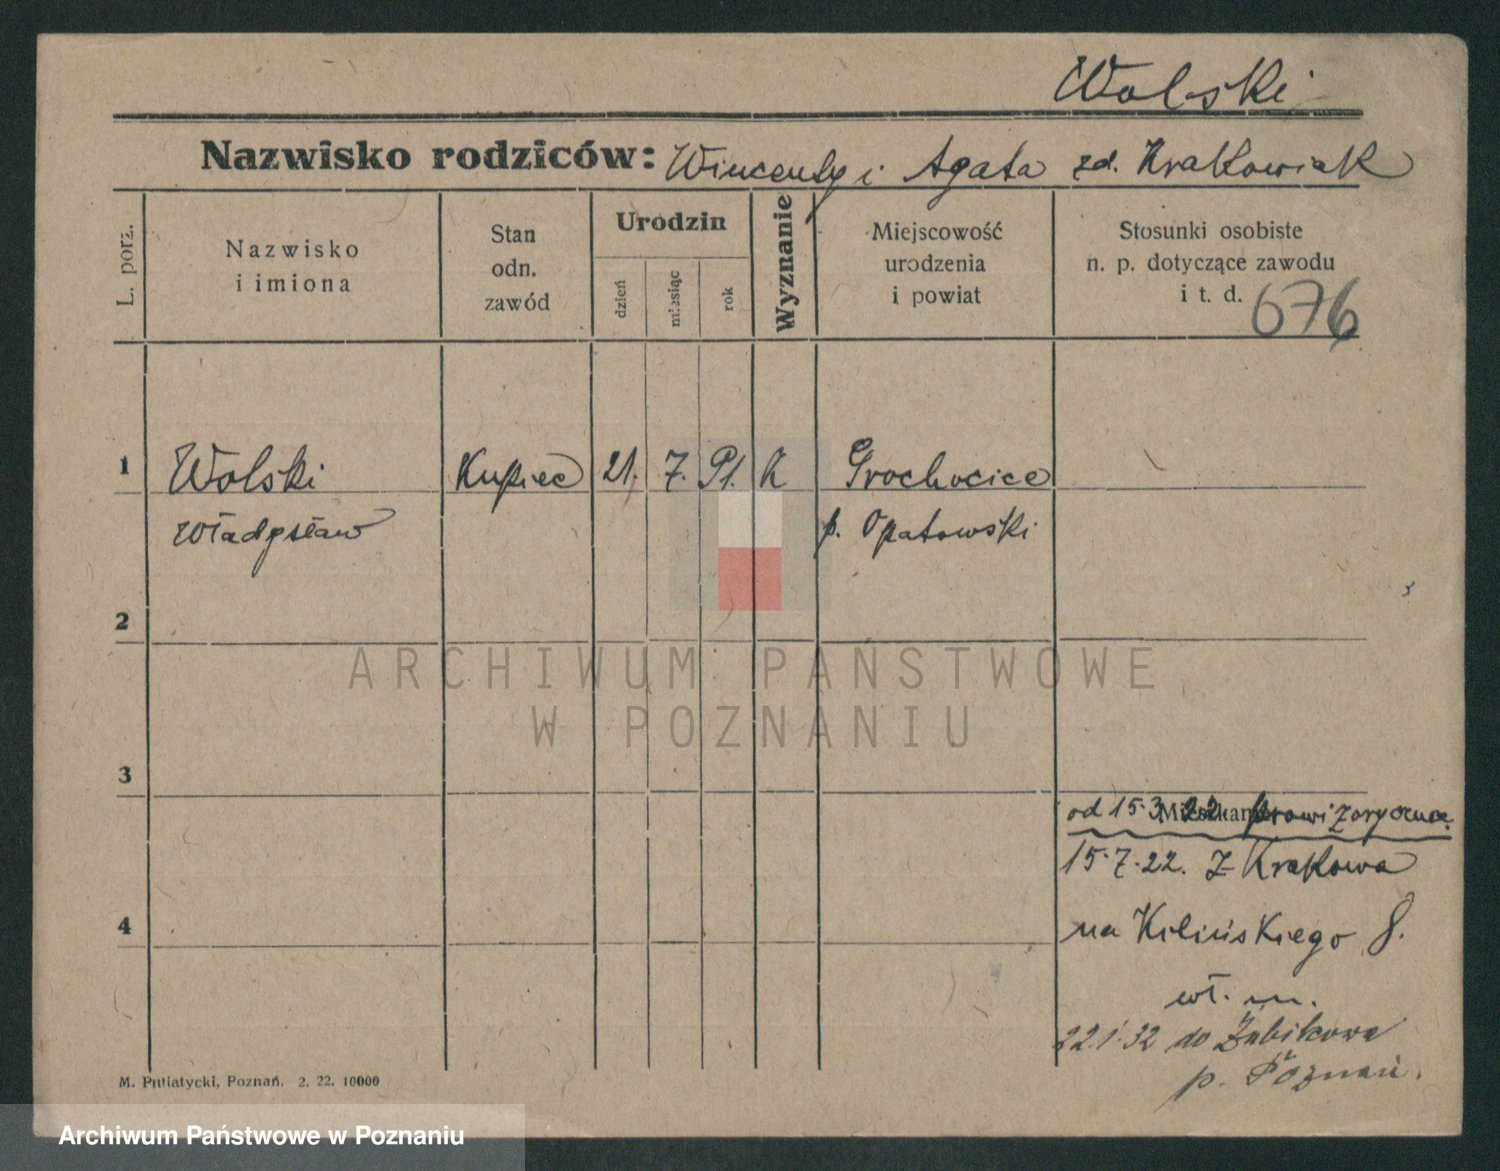 Wolski
Nazwisko rodziców: Wincenty i Agata zd. Krakowiak
L. porz.
Nazwisko
i imiona
Stan
odn.
zawód
Urodzin
dzień
miesiąc
rok
Wyznanie
Miejscowość
urodzenia
i powiat
Stosunki osobiste
n. p. dotyczące zawodu
i t. d.
676
1 Wolski Kupiec 21. 7. 91. K Grochocice
Władysław p. Opatowski
2
ARCHIWUM PAŃSTWOWE
W POZNANIU
3
Mieszkanie
od 15.3.22. prowizoryczne
15.7.22. z Krakowa
4 na Kilińskiego 8.
wł. m.
22.1.32 do Żabikowa
p. Poznań.
M. Putiatycki, Poznań. 2. 22. 10000
Archiwum Państwowe w Poznaniu